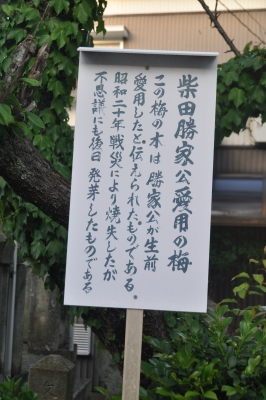 柴田勝家公愛用の梅
この梅の木は勝家公が生前
愛用したと伝えられたものである
昭和二十年戦災により焼失したが
不思議にも後日発芽したものである